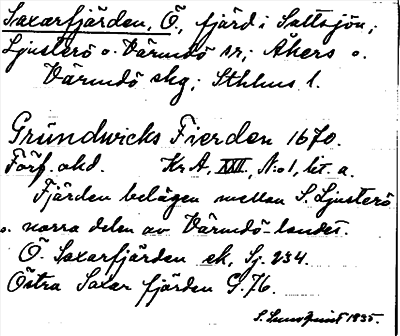 Saxarfjärden, Ö., fjärd i Saltsjön;
Ljusterö o. Värmdö sr; Åkers o.
Värmdö skg; Sthlms l.
Gründwicks Fierden 1670.
Förf. okd. Kr A, XXII, N:o 1, lit. a.
Fjärden belägen mellan S. Ljusterö
o. norra delen av Värmdö-landet.
Ö. Saxarfjärden ek. Sj. 234.
Östra Saxar fjärden G. 76.
S. Lundquist 1935.